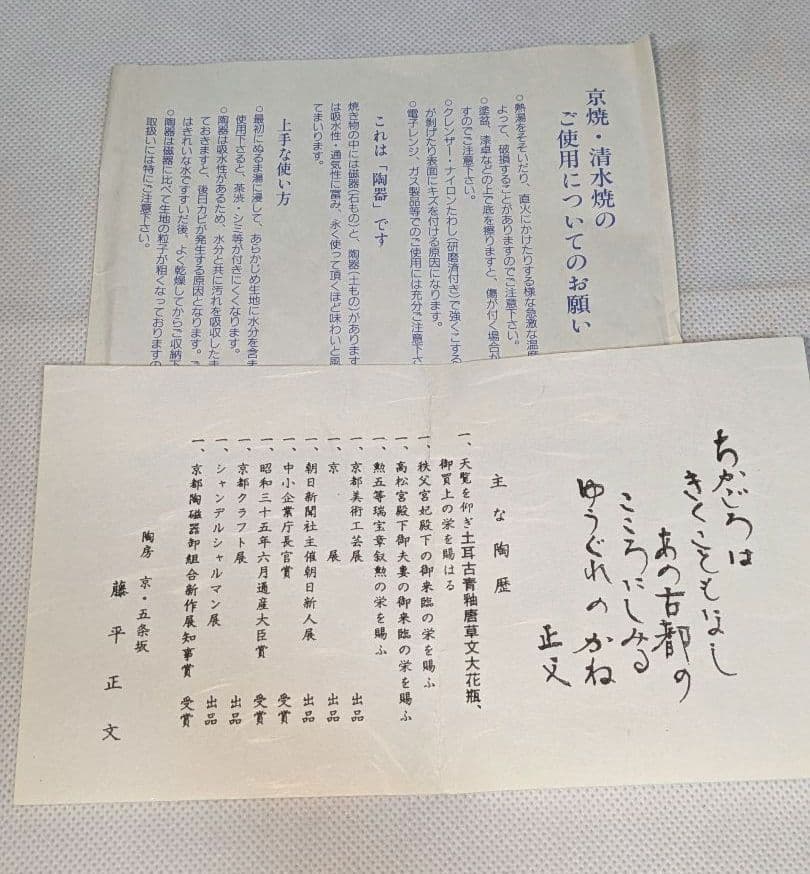 京焼・清水焼の
ご使用についてのお願い
○熱湯をそそいだり、直火にかけたりする様な急激な温度
よって、破損することがありますのでご注意下さい。
○塗盆、漆卓などの上で底を擦りますと、傷が付く場合が
すのでご注意下さい。
○クレンザー・ナイロンたわし(研磨済付き)で強くこする
が剝げたり表面にキズを付ける原因になります。
○電子レンジ、ガス製品等でのご使用には充分ご注意下さ
これは「陶器」です
焼き物の中には磁器(石もの)と、陶器(土もの)があります
は吸水性・通気性に富み、永く使って頂くほど味わいと風
てまいります。
上手な使い方
○最初にぬるま湯に浸して、あらかじめ生地に水分を含ま
使用下さると、茶渋・シミ等が付きにくくなります。
○陶器は吸水性があるため、水分と共に汚れを吸収したま
ておきますと、後日カビが発生する原因となります。ご
はきれいな水ですすいだ後、よく乾燥してからご収納下
○陶器は磁器に比べて生地の粒子が粗くなっておりますの
取扱いには特にご注意下さい。
ちかごろは
きくこともなし
あの古都の
こころにしみる
ゆうぐれのかね
正文
主な陶歴
一、天覧を仰ぎ土耳古青釉唐草文大花瓶、
御買上の栄を賜はる
一、秩父宮妃殿下の御来臨の栄を賜ふ
一、高松宮殿下御夫妻の御来臨の栄を賜ふ
一、勲五等瑞宝章叙勲の栄を賜ふ
一、京都美術工芸展 出品
一、京展 出品
一、朝日新聞社主催朝日新人展 出品
一、中小企業庁長官賞 受賞
一、昭和三十五年六月通産大臣賞 受賞
一、京都クラフト展 出品
一、シャンデルシャルマン展 出品
一、京都陶磁器卸組合新作展知事賞 受賞
陶房 京・五条坂
藤平正文